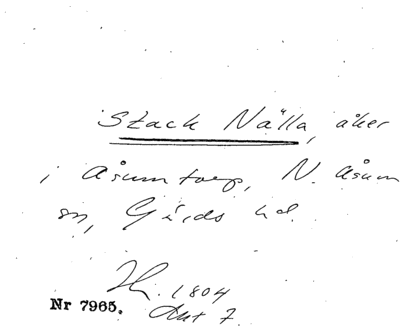 Stack Nälla, åker
i Åsumtorp, N. Åsum
sn, Gärds hd.
1804
Akt 7
Nr 7965.